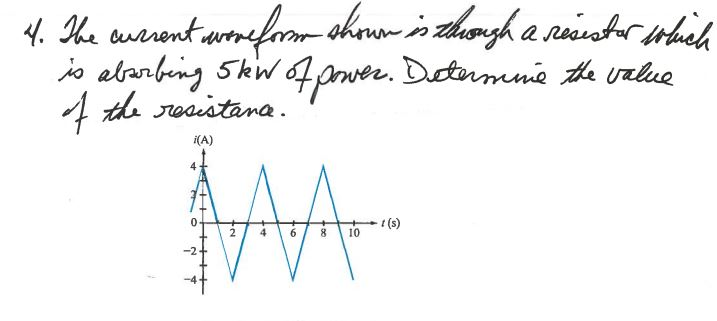 4. The current waveform shown is through a resistor which
is absorbing 5kW of power. Determine the value
of the resistance.
i(A)
4
2
0 2 4 6 8 10 t (s)
-2
-4